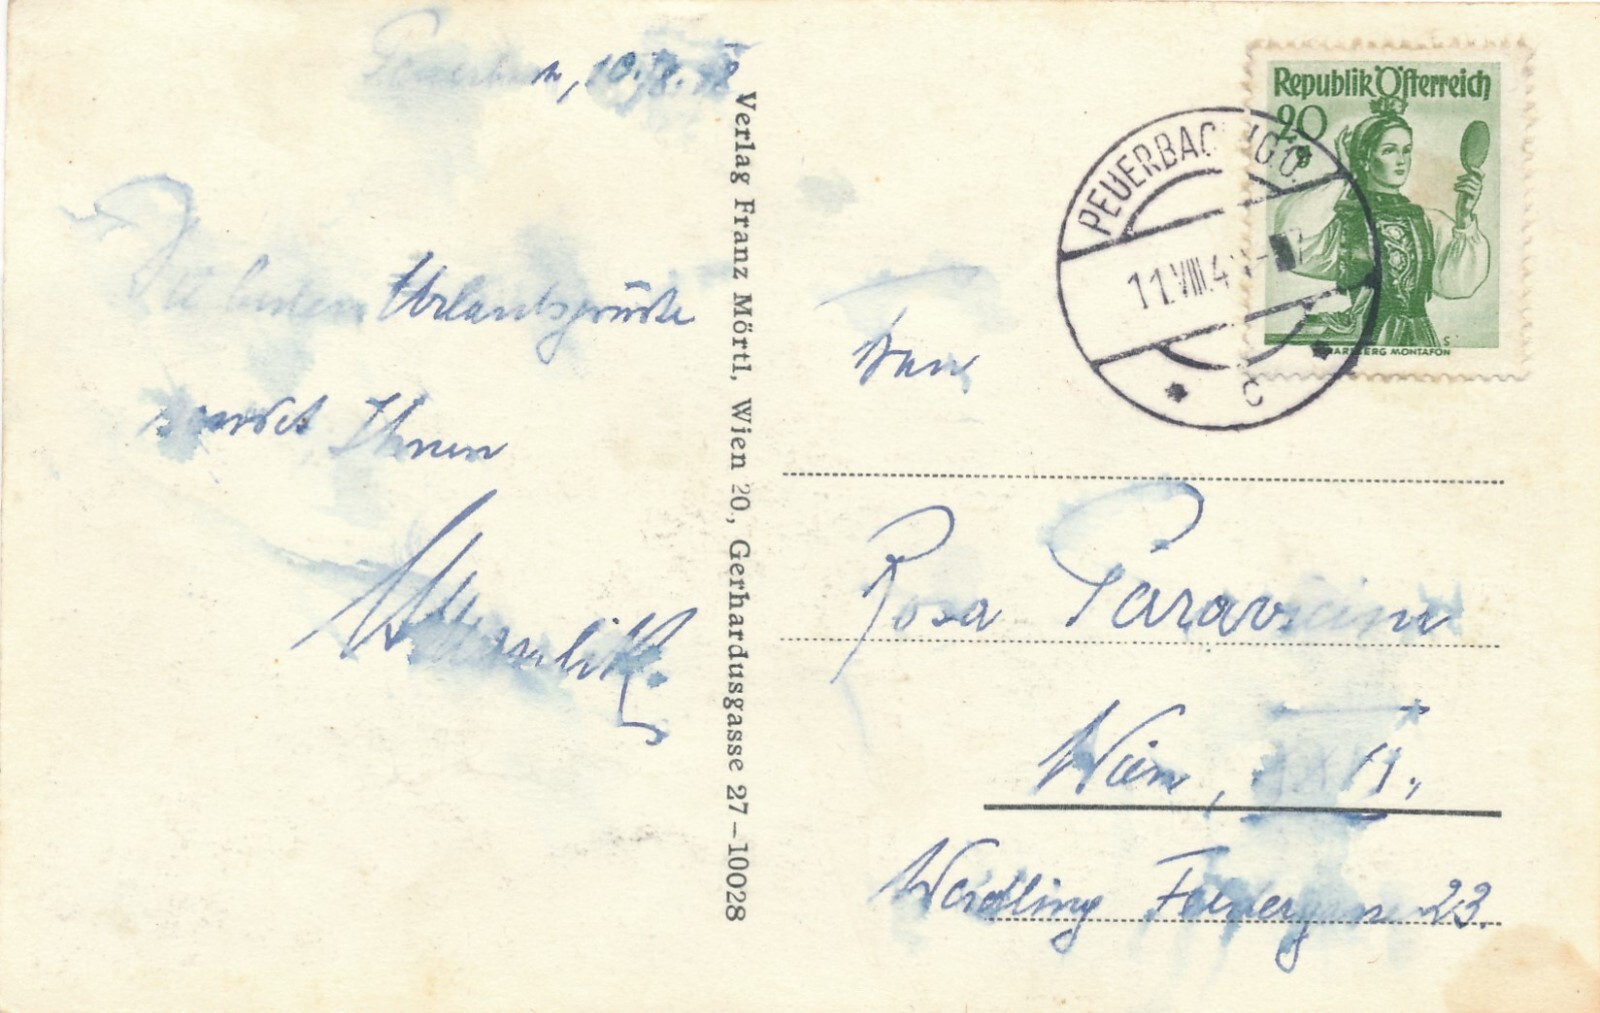 Peuerbach, 10.8.48
Die besten Urlaubsgrüße
sendet Ihnen
Verlag Franz Mörtl, Wien 20., Gerhardusgasse 27–10028
Republik Österreich
20
ARLBERG MONTAFON
PEUERBACH
11.VIII.4
C
Frau
Rosa Paravicini
Wien,
Weidling 23.